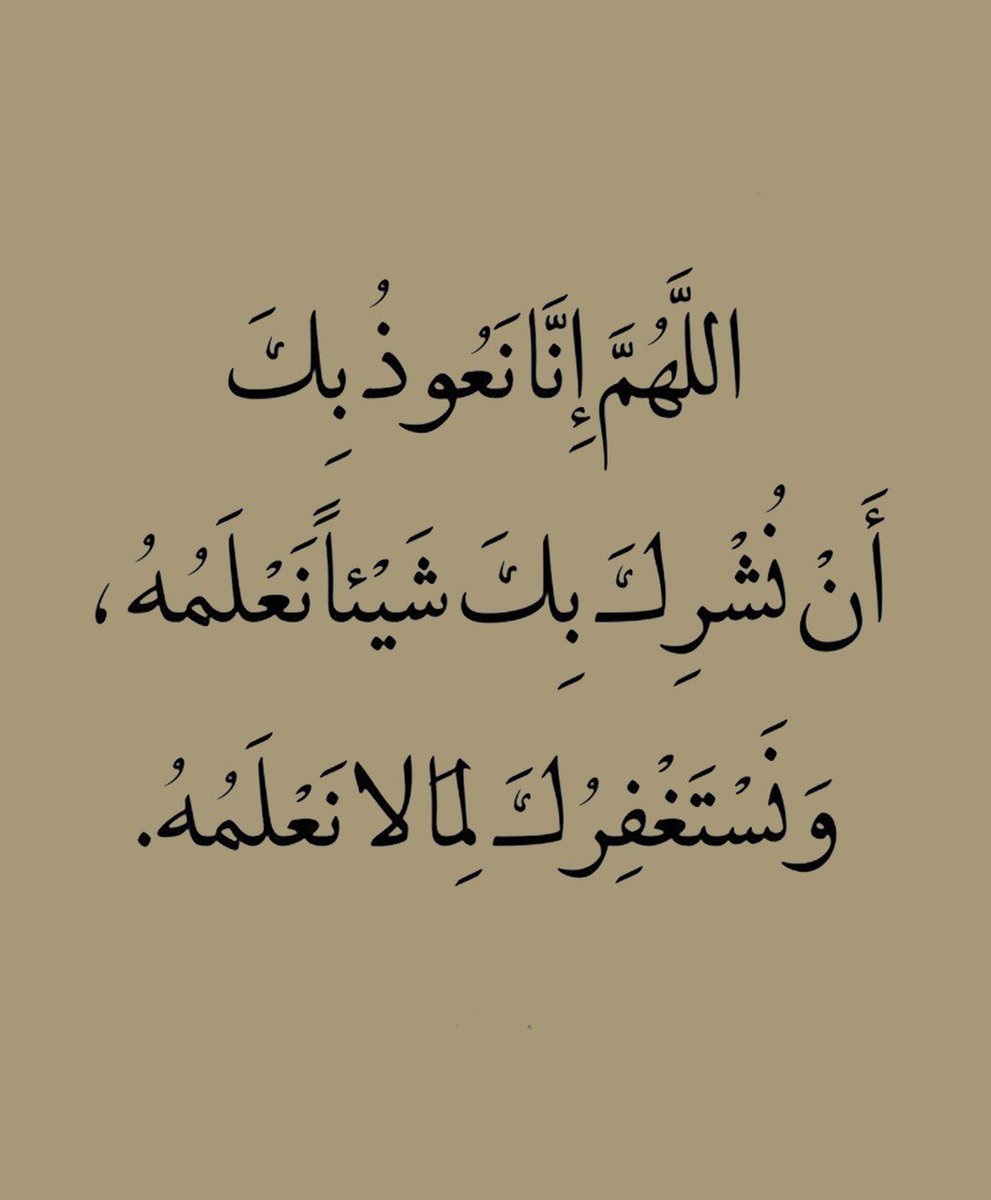 اللَّهُمَّ إِنَّا نَعُوذُ بِكَ
أَنْ نُشْرِكَ بِكَ شَيْئاً نَعْلَمُهُ،
وَنَسْتَغْفِرُكَ لِمَا لا نَعْلَمُهُ.